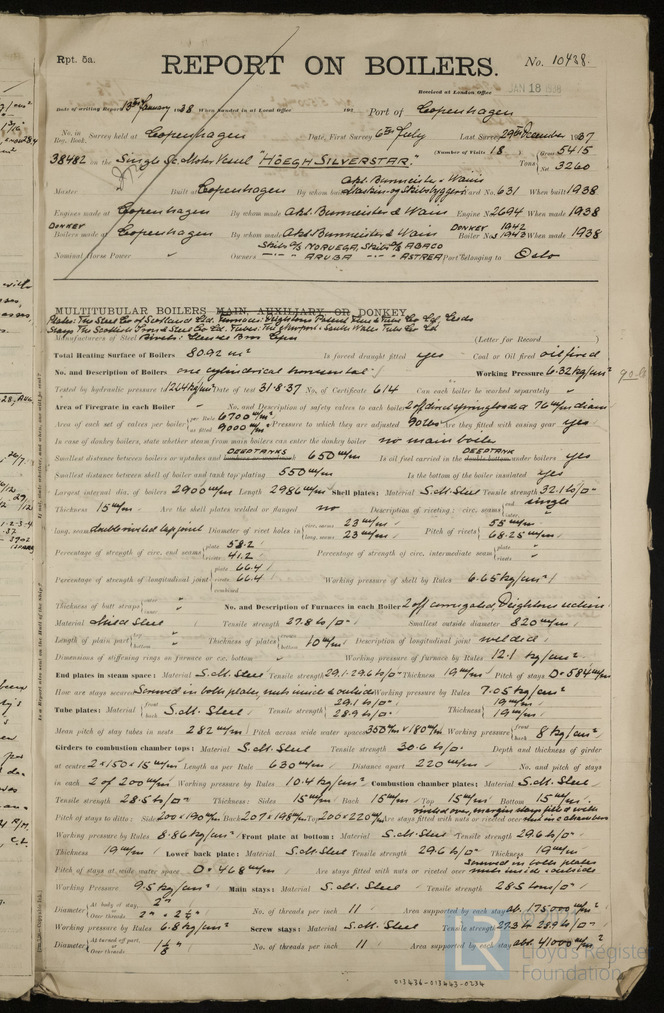 Rpt. 5a.
REPORT ON BOILERS.
No. 10438.
Received at London Office JAN 18 1938
Date of writing Report 13th January 1938 When handed in at Local Office 192 Port of Copenhagen
No. in Reg. Book. Survey held at Copenhagen Date, First Survey 6th July Last Survey 29th December 1937
38482 on the Single Sc. Motor Vessel "HÖEGH SILVERSTAR." (Number of Visits 18) Tons Gross 5415 Net 3260
Master Built at Copenhagen By whom built Akt. Burmeister & Wain's Maskin og Skibsbyggeri Yard No. 631 When built 1938
Engines made at Copenhagen By whom made Akt. Burmeister & Wain Engine No. 2694 When made 1938
DONKEY Boilers made at Copenhagen By whom made Akt. Burmeister & Wain DONKEY Boiler No. 1942 1943 When made 1938
Nominal Horse Power " Owners Skibs A/S NORUEGA, Skibs A/S ABACO
ARUBA ASTREA Port belonging to Oslo
MULTITUBULAR BOILERS MAIN, AUXILIARY, OR DONKEY
Plates: The Steel Co of Scotland Ltd. Furnaces: Deighton's Patent Flue & Tube Co Ltd. Leeds
Stays The Scottish Iron & Steel Co Ld. Tubes: The Newport & South Wales Tube Co Ld
Manufacturers of Steel (Letter for Record )
Total Heating Surface of Boilers 80.92 m² Is forced draught fitted yes Coal or Oil fired oil fired
No. and Description of Boilers one cylindrical horizontal Working Pressure 6.32 kg/cm²
Tested by hydraulic pressure to 12.64 kg/cm² Date of test 31.8.37 No. of Certificate 614 Can each boiler be worked separately "
Area of Firegrate in each Boiler " No. and Description of safety valves to each boiler 2 off direct spring loaded 76 m/m diam
Area of each set of valves per boiler per Rule 6700 m/m² as fitted 9000 m/m² Pressure to which they are adjusted 90 lbs Are they fitted with easing gear yes
In case of donkey boilers, state whether steam from main boilers can enter the donkey boiler no main boiler
Smallest distance between boilers or uptakes and bunkers or woodwork DEEPTANKS 650 m/m Is oil fuel carried in the double bottom DEEPTANK under boilers yes
Smallest distance between shell of boiler and tank top plating 550 m/m Is the bottom of the boiler insulated yes
Largest internal dia. of boilers 2900 m/m Length 2986 m/m Shell plates: Material S.M. Steel Tensile strength 32.1 t/□"
Thickness 15 m/m Are the shell plates welded or flanged no Description of riveting: circ. seams end single inter. "
long. seams double riveted lap joint Diameter of rivet holes in circ. seams 23 m/m long. seams 23 m/m Pitch of rivets 55 m/m 68.25 m/m
Percentage of strength of circ. end seams plate 58.2 rivets 41.2 Percentage of strength of circ. intermediate seam plate " rivets "
Percentage of strength of longitudinal joint plate 66.4 rivets 66.4 combined Working pressure of shell by Rules 6.65 kg/cm²
Thickness of butt straps outer " inner " No. and Description of Furnaces in each Boiler 2 off corrugated, Deightons section
Material Mild Steel Tensile strength 27.8 t/□" Smallest outside diameter 820 m/m
Length of plain part top " bottom " Thickness of plates crown bottom 10 m/m Description of longitudinal joint welded
Dimensions of stiffening rings on furnace or c.c. bottom " Working pressure of furnace by Rules 12.1 kg/cm²
End plates in steam space: Material S.M. Steel Tensile strength 29.1-29.6 t/□" Thickness 19 m/m Pitch of stays D=584 m/m
How are stays secured Screwed in both plates, nuts inside & outside Working pressure by Rules 7.05 kg/cm²
Tube plates: Material front back S.M. Steel Tensile strength 29.1 t/□" 28.9 t/□" Thickness 19 m/m 19 m/m
Mean pitch of stay tubes in nests 282 m/m Pitch across wide water spaces 350 m/m x 180 m/m Working pressure front back 8 kg/cm²
Girders to combustion chamber tops: Material S.M. Steel Tensile strength 30.6 t/□" Depth and thickness of girder
at centre 2x150x15 m/m Length as per Rule 630 m/m Distance apart 220 m/m No. and pitch of stays
in each 2 of 200 m/m Working pressure by Rules 10.4 kg/cm² Combustion chamber plates: Material S.M. Steel
Tensile strength 28.5 t/□" Thickness: Sides 15 m/m Back 15 m/m Top 15 m/m Bottom 15 m/m
Pitch of stays to ditto: Sides 200x190 m/m Back 207x198 m/m Top 200x220 m/m Are stays fitted with nuts or riveted over
Working pressure by Rules 8.86 kg/cm² Front plate at bottom: Material S.M. Steel Tensile strength 29.6 t/□"
Thickness 19 m/m Lower back plate: Material S.M. Steel Tensile strength 29.6 t/□" Thickness 19 m/m
Pitch of stays at wide water space D=468 m/m Are stays fitted with nuts or riveted over Screwed in both plates nuts inside & outside
Working Pressure 9.5 kg/cm² Main stays: Material S.M. Steel Tensile strength 28.5 tons/□"
Diameter At body of stay, 2" Over threads 2" & 2¼" No. of threads per inch 11 Area supported by each stay abt. 175000 m/m²
Working pressure by Rules 6.8 kg/cm² Screw stays: Material S.M. Steel Tensile strength 27.3 to 28.9 t/□"
Diameter At turned off part, or Over threads 1⅛" No. of threads per inch 11 Area supported by each stay abt. 41000 m/m²
LR Lloyd's Register Foundation
013436-013443-0234